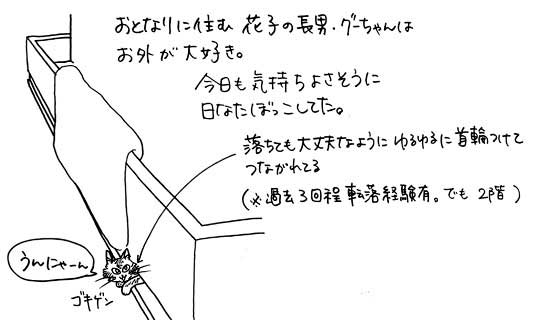 おとなりに住む 花子の長男・グーちゃんは
お外が大好き。
今日も気持ちよさそうに
日なたぼっこしてた。
落ちても大丈夫なように ゆるゆるに首輪つけて
つながれてる
(※過去3回程転落経験有。でも 2階)
うんにゃーん
ゴキゲン